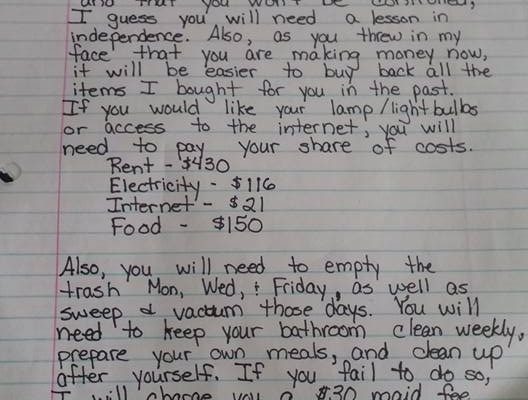 and that you won't be controlled,
I guess you will need a lesson in
independence. Also, as you threw in my
face that you are making money now,
it will be easier to buy back all the
items I bought for you in the past.
If you would like your lamp/lightbulbs
or access to the internet, you will
need to pay your share of costs.
Rent - $430
Electricity - $116
Internet - $21
Food - $150
Also, you will need to empty the
trash Mon, Wed, & Friday, as well as
sweep & vacuum those days. You will
need to keep your bathroom clean weekly,
prepare your own meals, and clean up
after yourself. If you fail to do so,
I will charge you a $30 maid fee